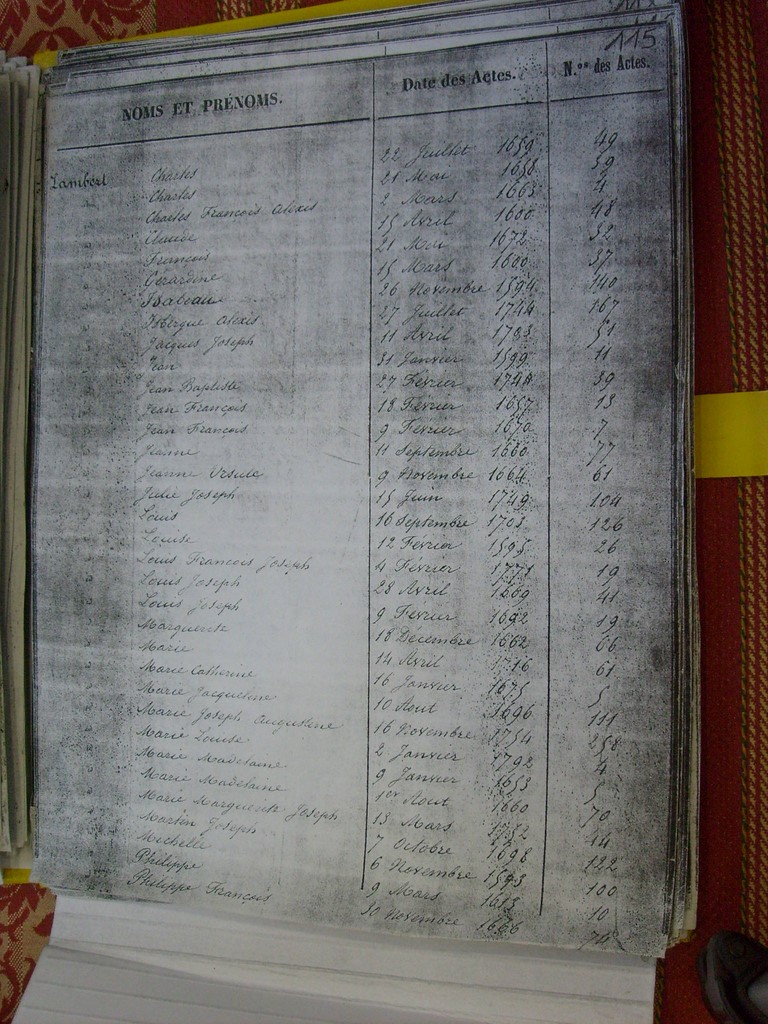 115
NOMS ET PRÉNOMS. Date des Actes. N.os des Actes.
Lambert Charles 22 Juillet 1659 49
" Charles 21 Mai 1658 39
" Charles François Alexis 2 Mars 1663 4
" Claude 15 Avril 1600 48
" François 21 Mai 1672 32
" Gerardine 15 Mars 1600 37
" Isabeau 26 Novembre 1594 140
" Isbergue Alexis 27 Juillet 1744 167
" Jacques Joseph 11 Avril 1703 51
" Jean 31 Janvier 1599 11
" Jean Baptiste 27 Février 1744 39
" Jean François 18 Février 1657 13
" Jean François 9 Février 1670 7
" Jeanne 11 Septembre 1660 77
" Jeanne Ursule 9 Novembre 1664 61
" Julie Joseph 15 Juin 1749 104
" Louis 16 Septembre 1703 126
" Louise 12 Février 1595 26
" Louis François Joseph 4 Février 1771 19
" Louis Joseph 28 Avril 1669 41
" Louis Joseph 9 Février 1692 19
" Marguerite 18 Décembre 1662 66
" Marie 14 Avril 1716 61
" Marie Catherine 16 Janvier 1675 5
" Marie Jacqueline 10 Aout 1696 111
" Marie Joseph Augustine 16 Novembre 1754 258
" Marie Louise 2 Janvier 1792 4
" Marie Madelaine 9 Janvier 1653 5
" Marie Madelaine 1er Aout 1660 70
" Marie Marguerite Joseph 13 Mars 1732 44
" Martin Joseph 7 Octobre 1698 122
" Michelle 6 Novembre 1593 100
" Philippe 9 Mars 1613 10
" Philippe François 30 Novembre 1666 74